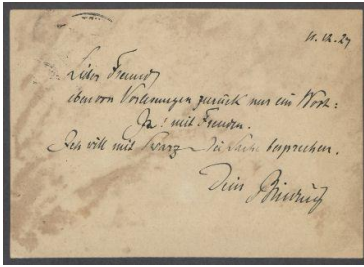 11.12.27
Lieber Freund,
eben von Vorlesungen zurück nur ein Wort:
Ja! mit Freuden.
Ich will mit die Sache besprechen.
Dein Binding